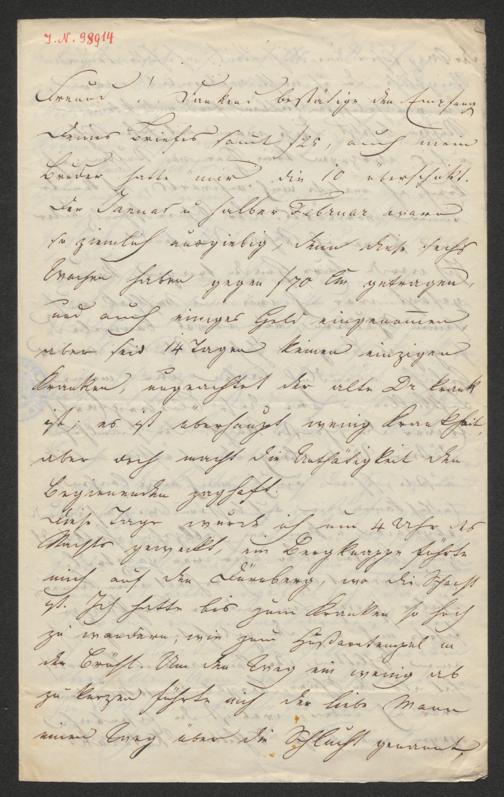 I. N. 98914
Freund! Dankend bestätige den Empfang
Deines Briefes samt f 25, auch mein
Bruder hatte mir die 10 überschikt.
Der Januar u halber Februar waren
so ziemlich ausgiebig denn diese sechs
Wochen haben gegen f 70 CM getragen,
und auch einiges Geld eingenommen,
aber seit 14 Tagen keinen einzigen
Kranken, ungeachtet der alte Dr krank
ist; es ist überhaupt wenig Krankheit,
aber doch macht die Unthätigkeit den
Beginnenden zaghaft.
Diese Tage wurde ich um 4 Uhr des
Nachts geweckt, ein Bergknappe führte
mich auf den Dürnberg, wo die Schacht
ist. Ich hatte bis zum Kranken so hoch
zu wandern, wie zum Husarentempel in
der Brühl. Um den Weg ein wenig ab
zu kürzen führte mich der liebe Mann
einen Weg über die Schlucht genannt,